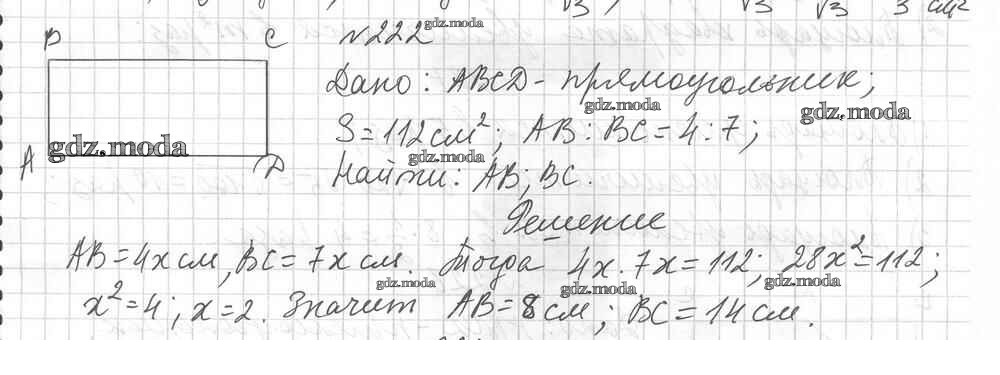 √3 √3 √3 3 см²
B C №222 gdz.moda
Дано: ABCD - прямоугольник;
gdz.moda gdz.moda
S=112см²; AB:BC=4:7;
gdz.moda gdz.moda
A D Найти: AB; BC.
Решение
AB=4x см, BC=7x см. Тогда 4x·7x=112; 28x²=112;
gdz.moda gdz.moda gdz.moda
x²=4; x=2. Значит AB=8см; BC=14см.